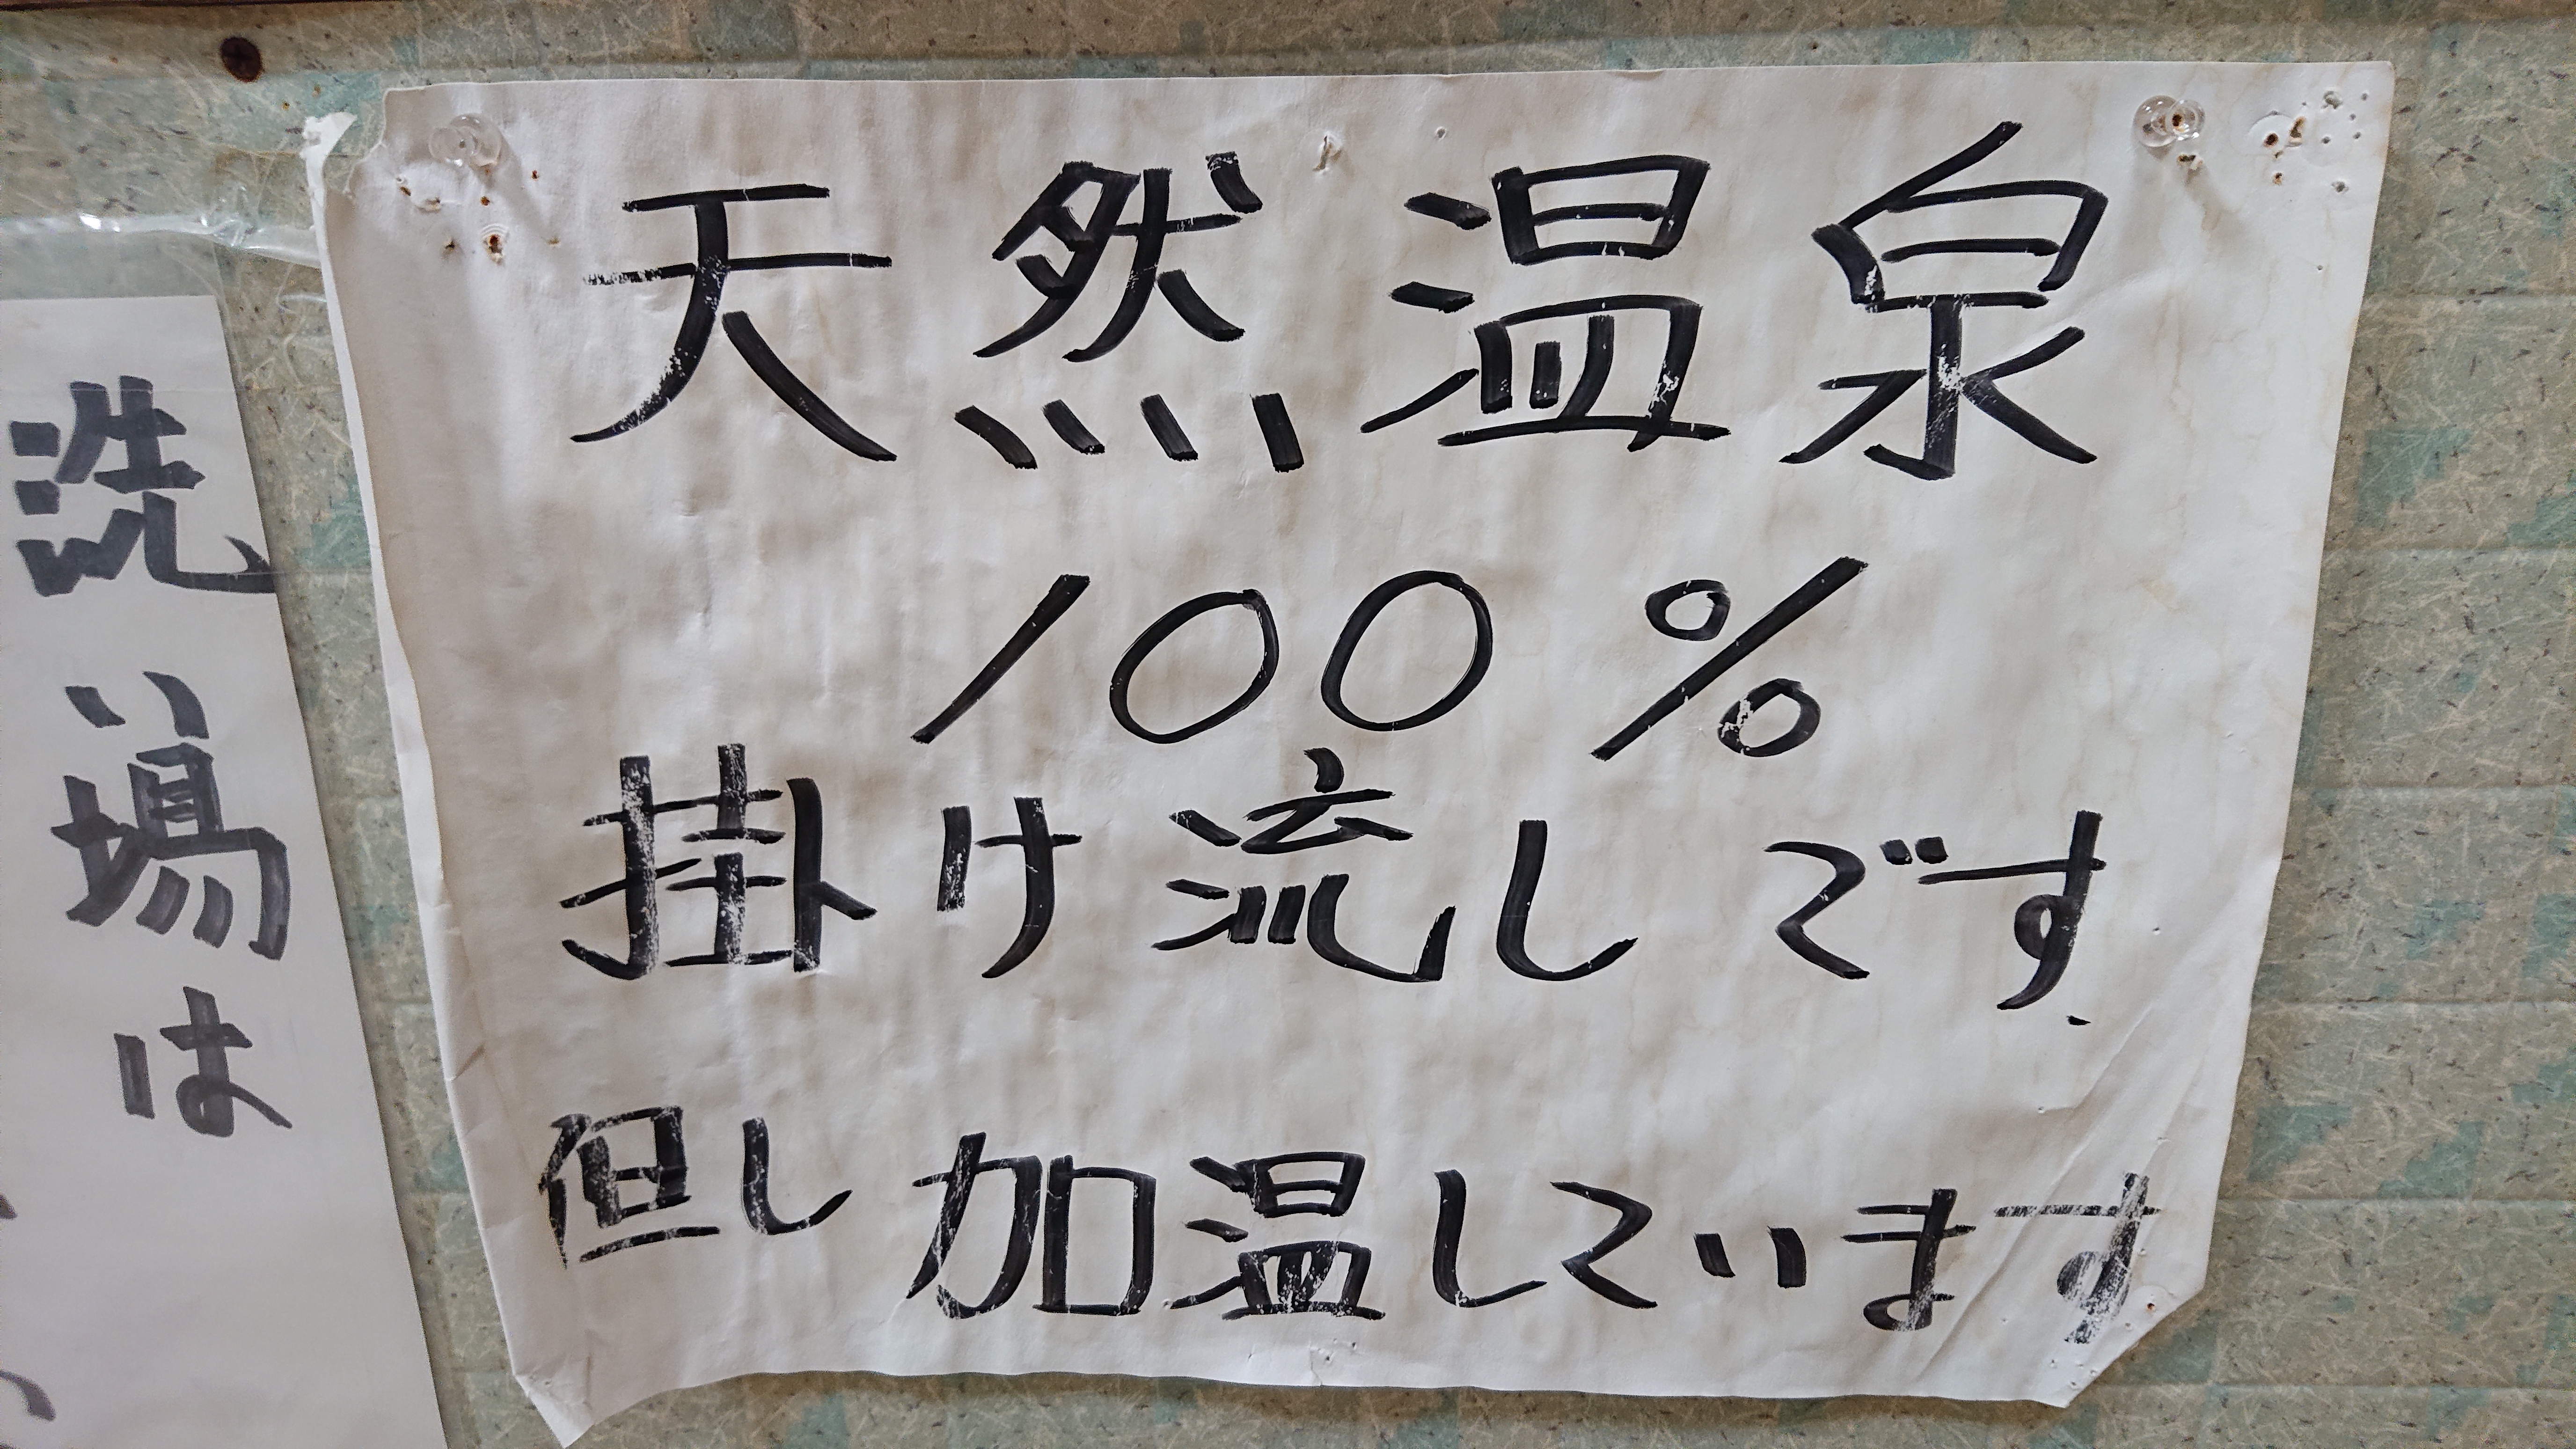 天然温泉
100%
掛け流しです.
但し加温しています
洗い場は